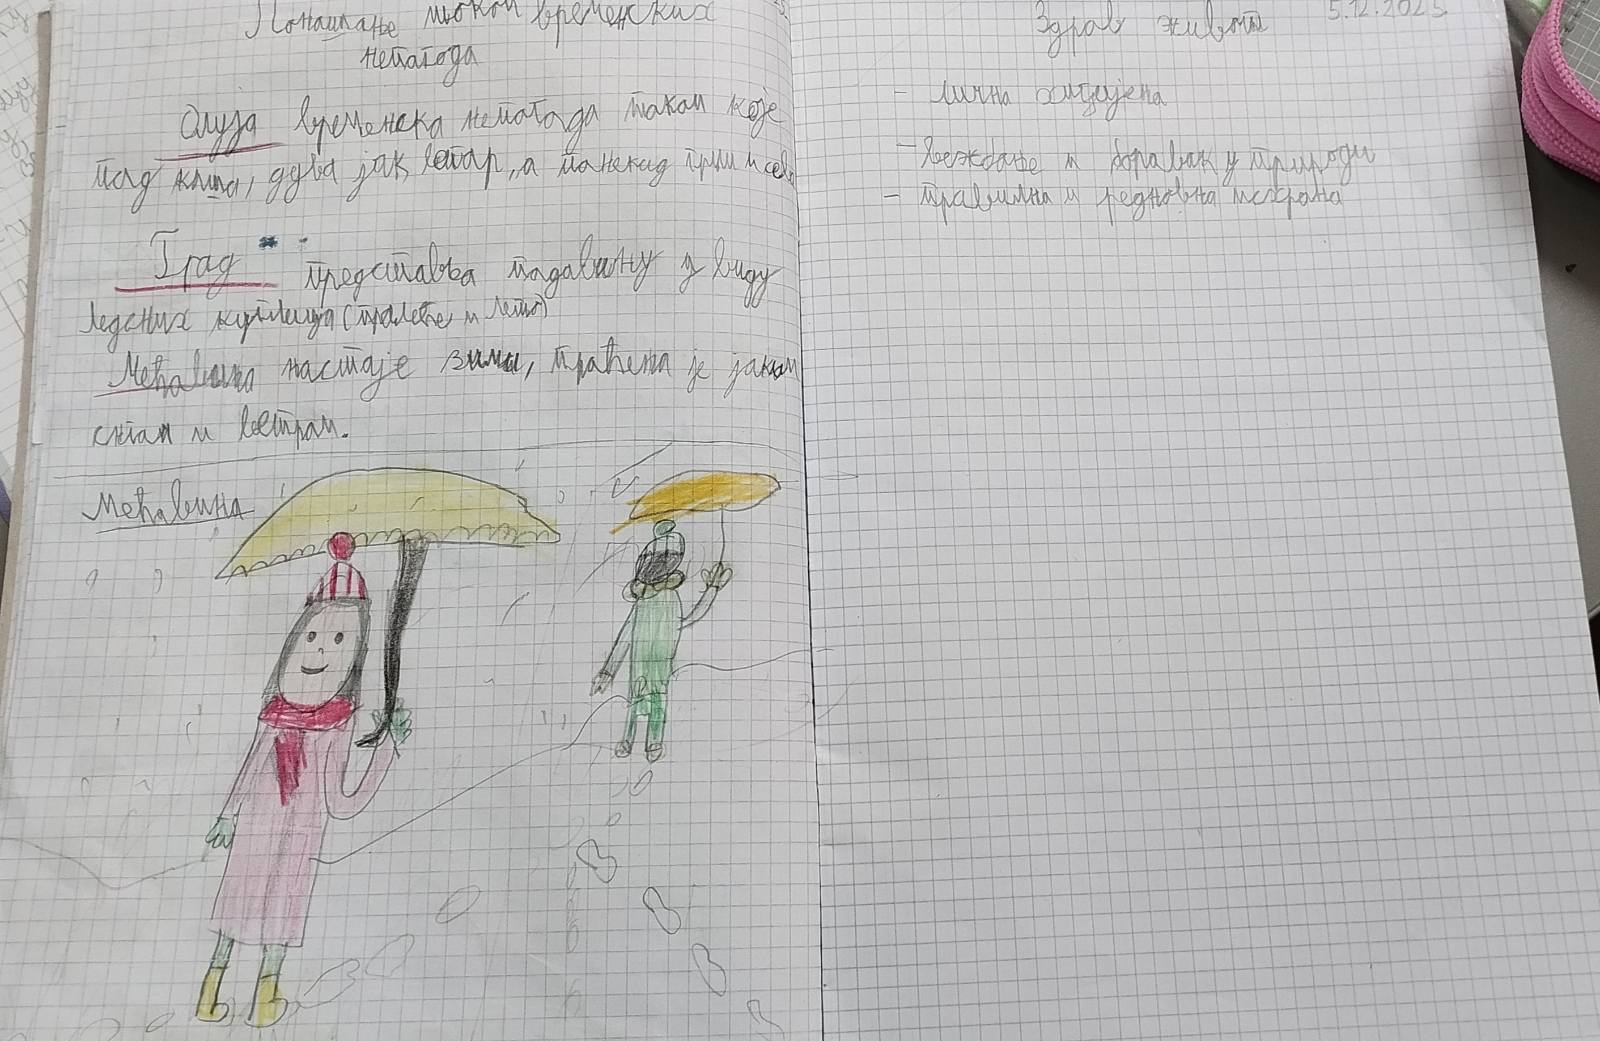 Понашање током временских
непогода
Олуја временска непогода током које
пад киша, дува јак ветар, а понекад грми и сева
Град представља падавину у виду
ледених куглица (пролеће и лето)
Мећавина настаје зими, праћена је јаким
снгом и ветром.
Мећавина
Здрав живот 5.12.2025.
- лична хигијена
- Вежбање и боравак у природи
- правилна и редновна исхрана